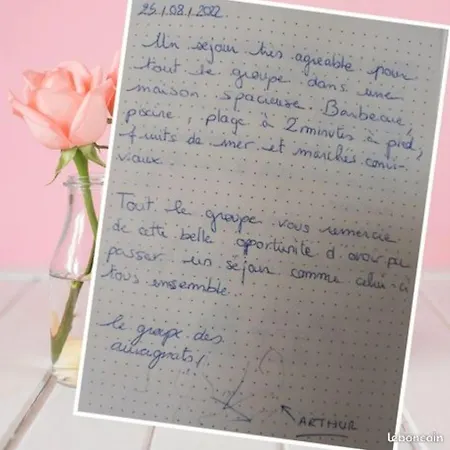 25/08/2022
Un séjour très agréable pour
tout le groupe dans une
maison spacieuse. Barbecue,
piscine, plage à 2 minutes à pied,
fruits de mer et marchés convi-
viaux.
Tout le groupe vous remercie
de cette belle oportunité d'avoir pu
passer un séjour comme celui-ci
tous ensemble.
le groupe des
auvragnats!
ARTHUR
leboncoin